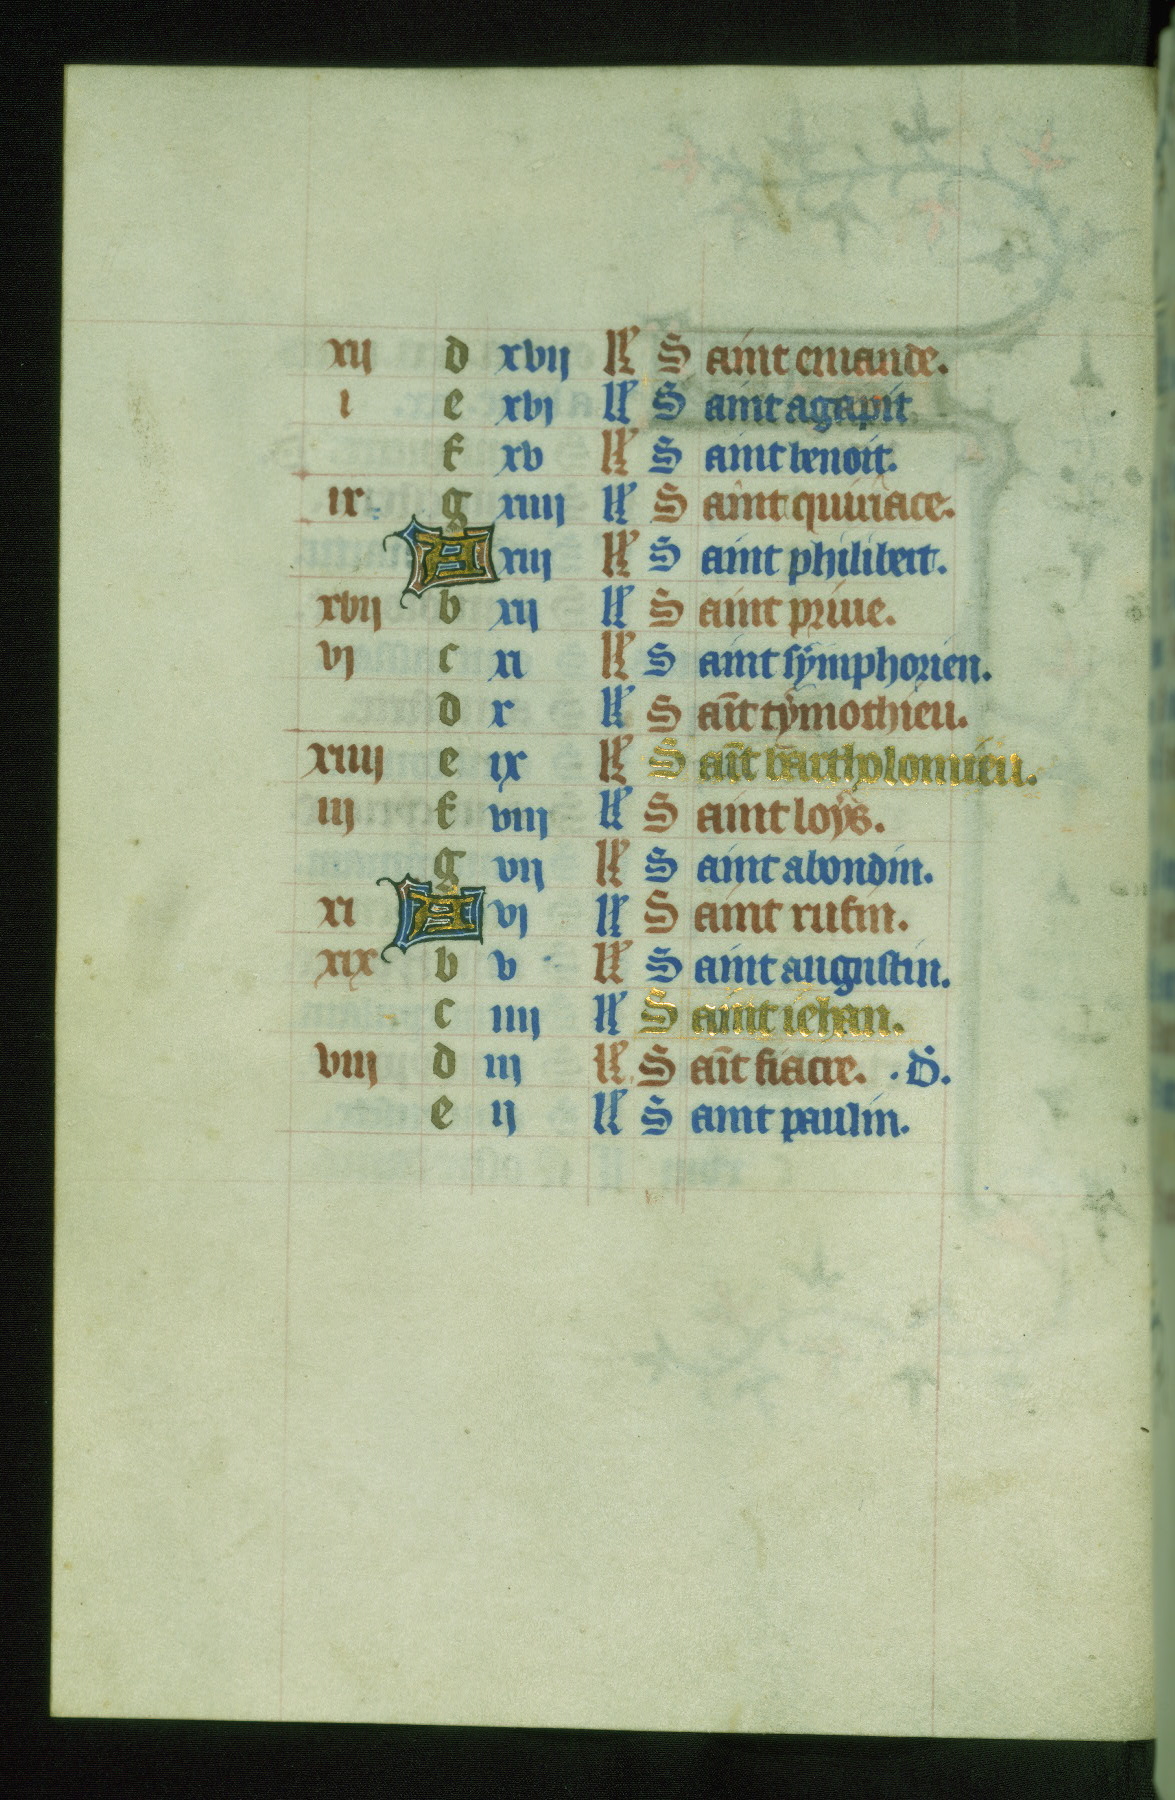 xij d xvij kl Saint emande.
i e xvj kl Saint agapit
f xv kl Saint benoit.
ix g xiiij kl Saint quiriace.
A xiij kl Saint philibert.
xvij b xij kl Saint priue.
vj c xi kl Saint symphorien.
d x kl Sait tymothieu.
xiiij e ix kl Sait bartholomieu.
iij f viij kl Saint loys.
g vij kl Saint abondin.
xi A vj kl Saint rufin.
xix b v kl Saint augustin.
c iiij kl Saint iehan.
viij d iij kl Sait fiacre. .D.
e ij kl Saint paulin.